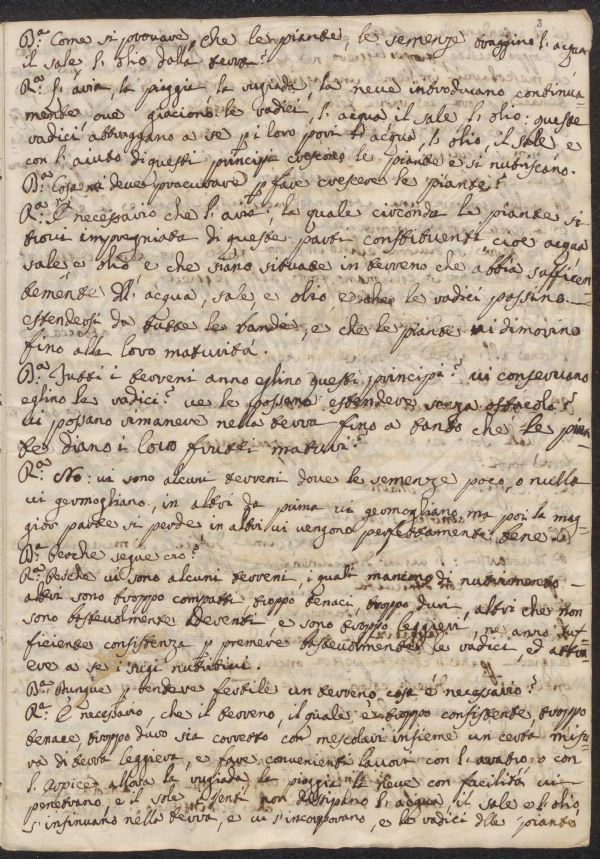 3
D.ª Come si provava, che le piante, le semenze traggino l'acqua
il sale l'olio dalla terra?
R.ª L'aria, la pioggia la rugiada, la neve introducano continua=
mente ove giacione le radici, l'acqua il sale l'olio: queste
radici attraggano a se p i loro pori l'acqua, l'olio, il sale e
con l'aiuto di questi principi crescono le piante e si nutriscano.
D.ª Cosa si deve procurare p fare crescere le piante?
R.ª È necessario che l'aria, la quale circonda le piante si
trovi impregniata di queste parti constituenti cioè acqua
sale e olio e che siano situate in terreno che abbia sufficen=
temente dll'acqua, sale e olio e che le radici possino
estendersi da tutte le bande, e che le piante vi dimorino
fino alla loro maturità.
D.ª Tutti i terreni anno eglino questi principi? vi conservano
eglino le radici? ve le possono estendere senza ostacolo?
vi possano rimanere nella terra fino a tanto che le pian=
te diano i loro frutti maturi?
R.ª No: vi sono alcuni terreni dove le semenze poco, o nulla
vi germogliano, in altri da prima vi germogliano ma poi la mag=
gior parte si perde in altri vi vengono perfettamente bene
D.ª Perche segue ciò?
R.ª Perche vi sono alcuni terreni, i quali mancano di nutrimento
altri sono troppo compatti troppo tenaci, troppo duri, altri che non
sono bastevolmente pesenti e sono troppo leggieri, ne anno suf=
ficiente consistenza p premere bastevolmente le radici, ed attra=
ere a se i sugi nutritivi.
D.ª Dunque p rendere fertile un terreno cosa è necessario?
R.ª È necessario, che il terreno, il quale è troppo consistente, troppo
tenace, troppo duro sia corretto con mescolarvi insieme un certa misu=
ra di terra leggiera, e fare convenienti lavori con l'aratro o con
l'erpice, allora la rugiada la pioggia la neve con facilità vi
penetrano, e il sole e venti non dissipano l'acqua, il sale e l'olio
s'insinuano nella terra, e vi s'incorporano, e le radici dlle piante